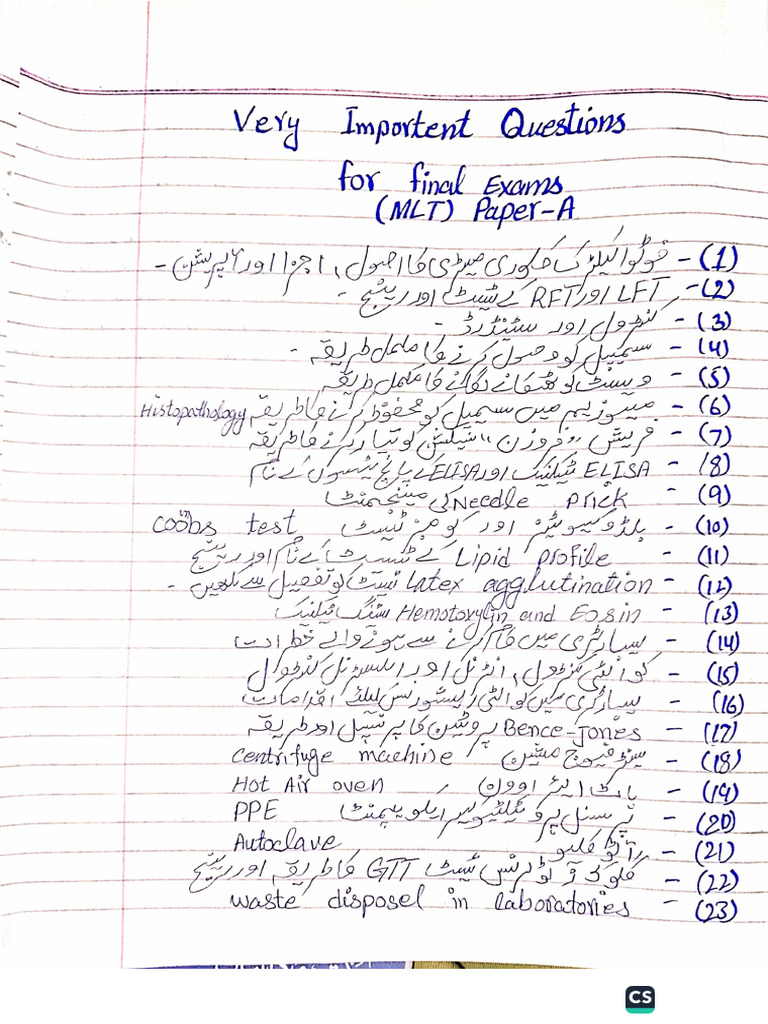 Very Importent Questions
for final Exams
(MLT) Paper-A
(1) - فوٹو الیکٹرک کلوری میٹری کا اصول، اجزا اور آپریشن -
(2) - LFT اور RFT کے ٹیسٹ اور رینج -
(3) - کنٹرول اور سٹینڈرڈ -
(4) - سیمپل کو وصول کرنے کا مکمل طریقہ -
(5) - ویسٹ کو ٹھکانے لگانے کا مکمل طریقہ
(6) - میوزیم میں سیمپل کو محفوظ کرنے کا طریقہ Histopathology
(7) - فریش "فروزن" سیکشن کو تیار کرنے کا طریقہ
(8) - ELISA ٹیکنیک اور ELISA کے پانچ ٹیسٹوں کے نام
(9) - Needle prick کی مینجمنٹ
(10) - بلڈ گروپنگ اور کومبز ٹیسٹ coobs test
(11) - Lipid profile کے ٹیسٹ کے نام اور رینج
(12) - Latex agglutination ٹیسٹ کو تفصیل سے لکھیں -
(13) - Hemotoxylin and Eosin سٹیننگ ٹیکنیک
(14) - لیبارٹری میں کام کرنے سے ہونے والے خطرات
(15) - کوالٹی کنٹرول، انٹرنل اور ایکسٹرنل کنٹرول
(16) - لیبارٹری میں کوالٹی ایشورنس کیلئے اقدامات
(17) - Bence-Jones پروٹین کا پرنسپل اور طریقہ
(18) - سینٹری فیوج مشین centrifuge machine
(19) - ہاٹ ایئر اوون Hot Air oven
(20) - پرسنل پروٹیکٹیو ایکویپمنٹ PPE
(21) - آٹو کلیو Autoclave
(22) - گلوکوز ٹولرنس ٹیسٹ GTT کا طریقہ اور رینج
(23) - waste disposel in laboratories
CS